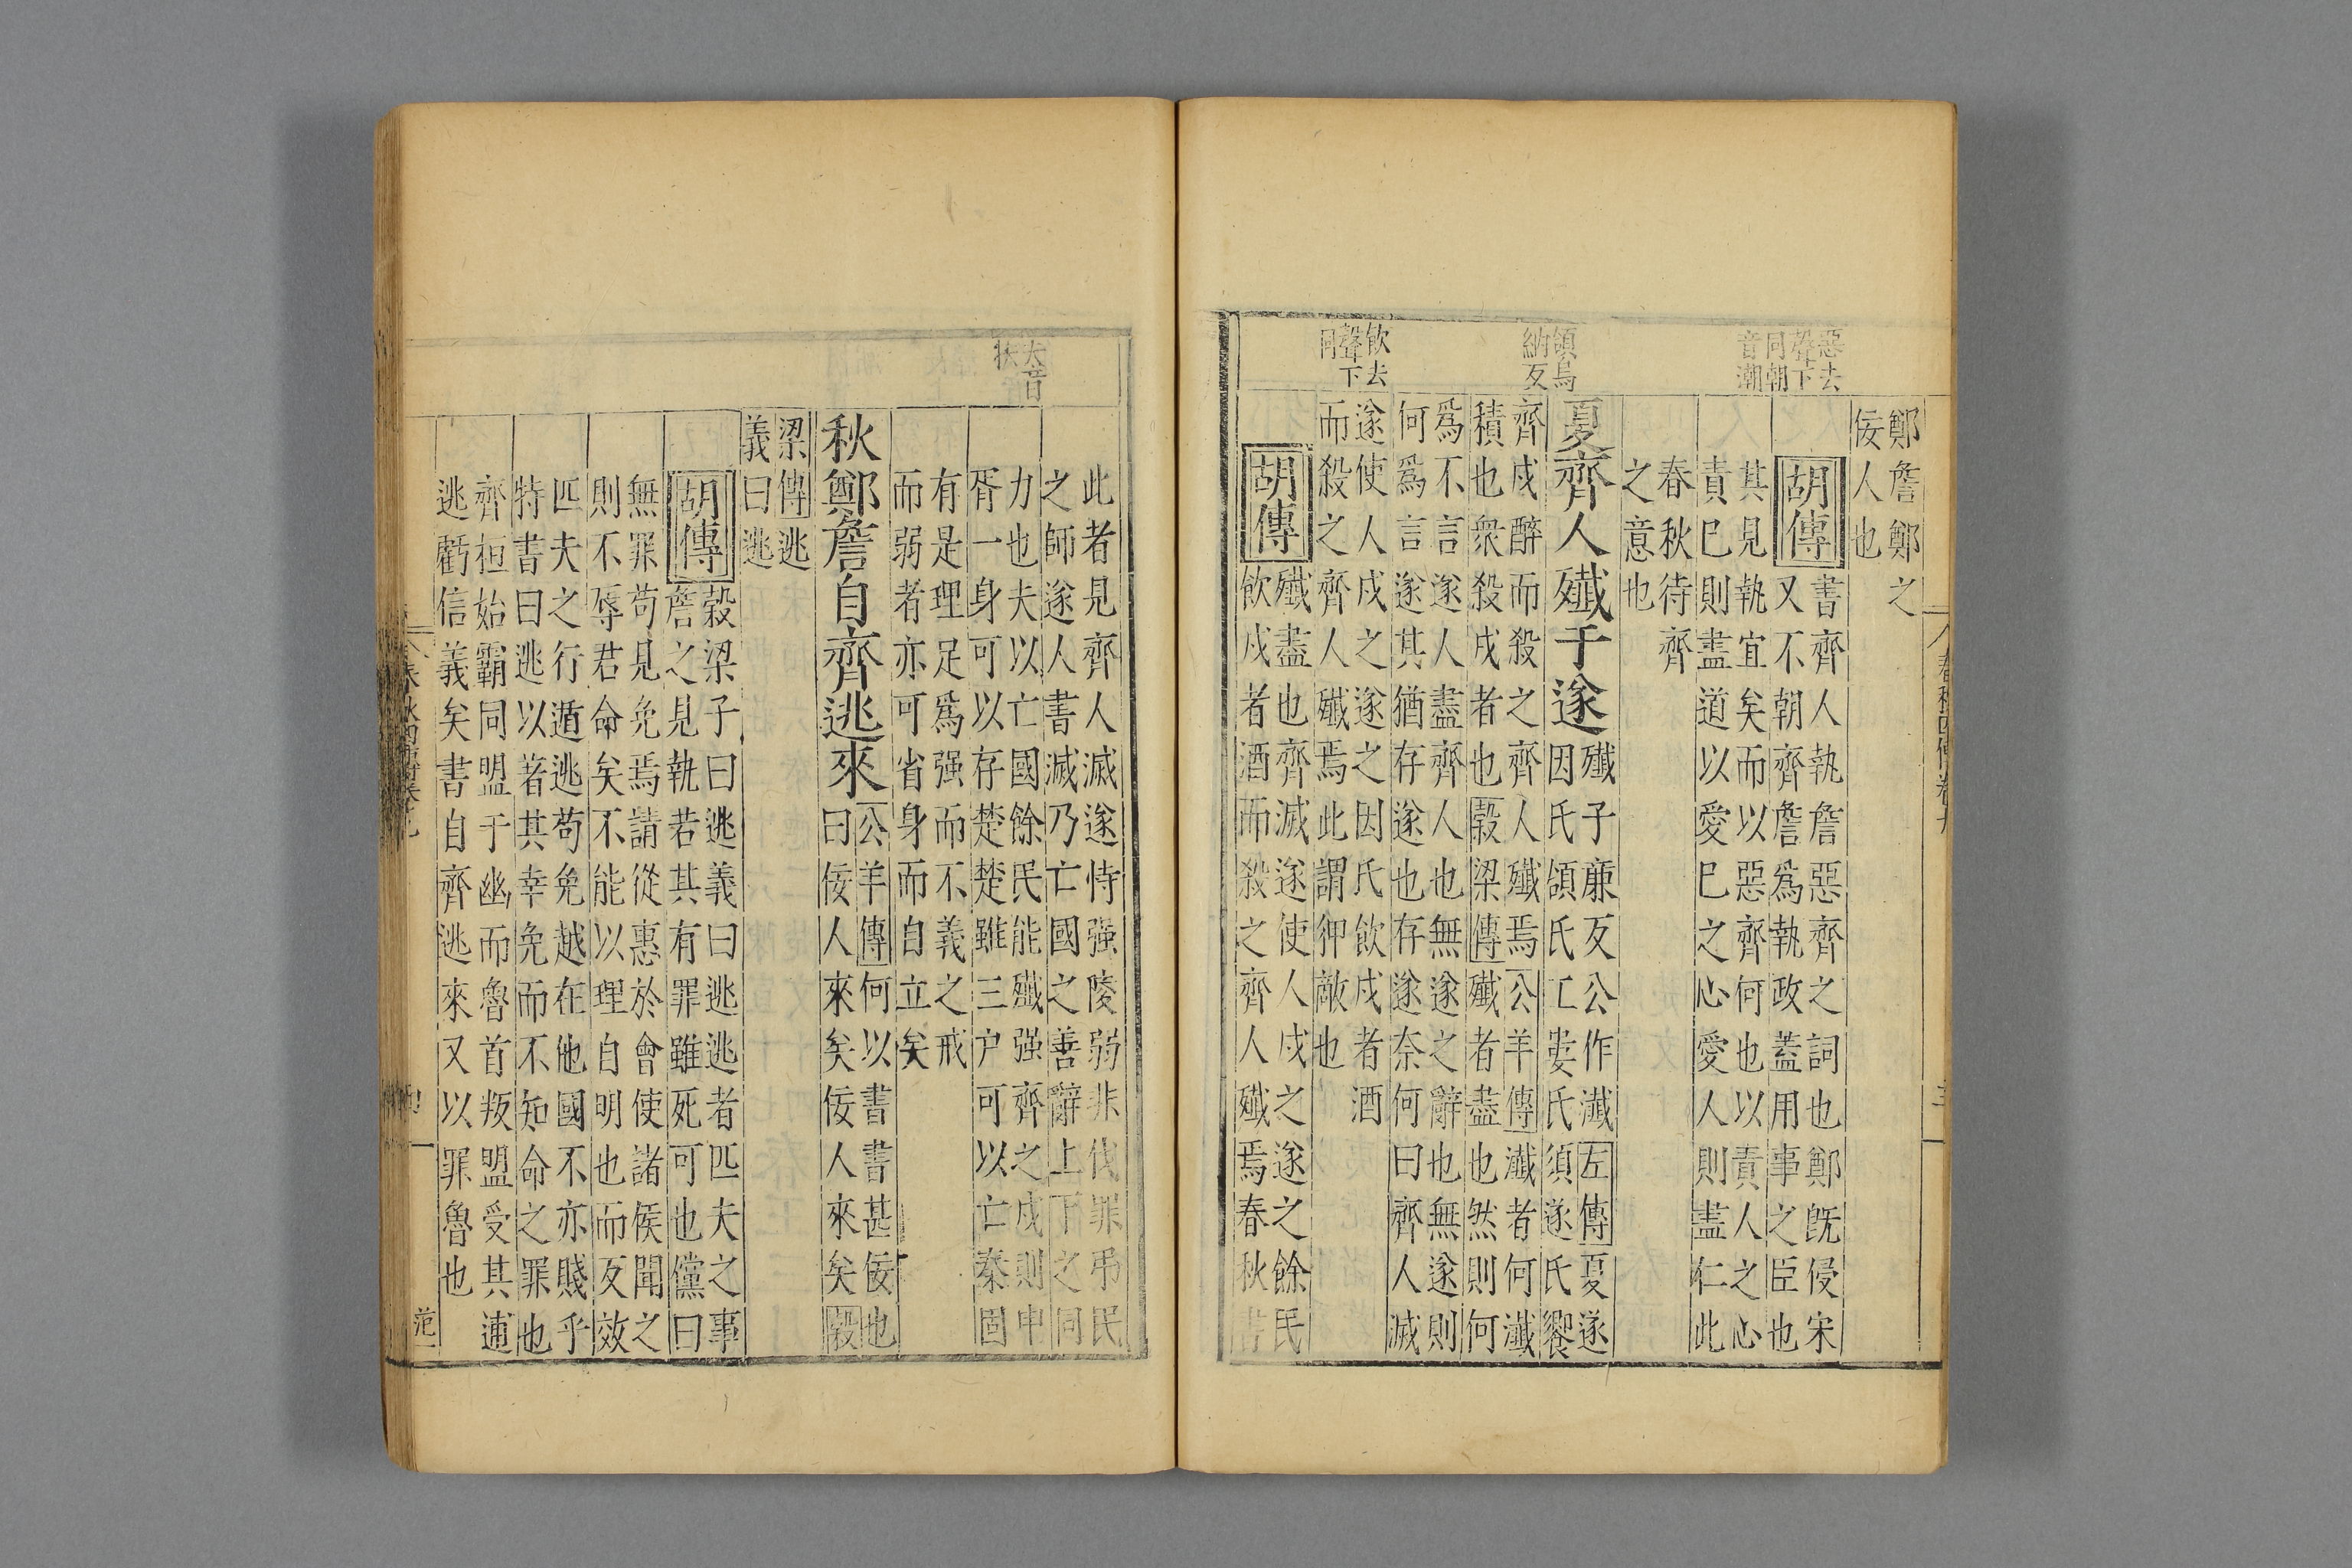 春秋四傳卷九
鄭詹鄭之
佞人也
胡傳
書齊人執詹惡齊之詞也鄭旣侵宋
又不朝齊詹爲執政蓋用事之臣也
其見執宜矣而以惡齊何也以責人之心
責已則盡道以愛已之心愛人則盡仁此
春秋待齊
之意也
夏齊人殱于遂
殱子亷反公作瀸左傳夏遂
因氏頜氏工婁氏須遂氏饗
齊戍醉而殺之齊人殱焉公羊傳瀸者何瀸
積也衆殺戍者也穀梁傳殱者盡也然則何
爲不言遂人盡齊人也無遂之辭也無遂則
何爲言遂其猶存遂也存遂奈何曰齊人滅
遂使人戍之遂之因氏飲戍者酒
而殺之齊人殱焉此謂狎敵也
胡傳
殱盡也齊滅遂使人戍之遂之餘民
飲戍者酒而殺之齊人殱焉春秋書
惡去
聲下
同朝
音潮
頜烏
納反
飲去
聲下
同
此者見齊人滅遂恃强陵弱非伐罪弔民
之師遂人書滅乃亡國之善辭上下之同
力也夫以亡國餘民能殱强齊之戍則申
胥一身可以存楚楚雖三户可以亡秦固
有是理足爲强而不義之戒
而弱者亦可省身而自立矣
秋鄭詹自齊逃來
公羊傳何以書書甚佞也
曰佞人來矣佞人來矣穀
梁傳逃
義曰逃
胡傳
穀梁子曰逃義曰逃逃者匹夫之事
詹之見執若其有罪雖死可也儻曰
無罪苟見免焉請從惠於會使諸侯聞之
則不辱君命矣不能以理自明也而反效
匹夫之行遁逃苟免越在他國不亦賤乎
特書曰逃以著其幸免而不知命之罪也
齊桓始霸同盟于幽而魯首叛盟受其逋
逃虧信義矣書自齊逃來又以罪魯也
夫音
扶